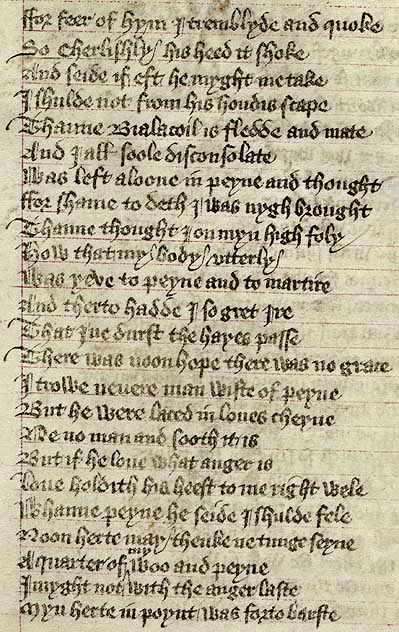 Ffor feer of hym I tremblyde and quoke
So Cherlishly his heed it shoke
And seide if eft he myght me take
I shulde not from his hondis scape
Thanne Bialacoil is fledde and mate
And I all soole disconsolate
Was left aloone in peyne and thought
Ffor shame to deth I was nygh brought
Thanne thought I on myn high foly
How that my body vtterly
Was yeve to peyne and to martire
And therto hadde I so gret Ire
That I ne durst the hayes passe
There was noon hope there was no grace
I trowe neuere man wiste of peyne
But he were laced in loues cheyne
Ne no man and sooth it is
But if he loue what anger is
Loue holdith his heest to me right wele
Whanne peyne he seide I shulde fele
Noon herte may thenke ne tunge seyne
A quarter of my woo and peyne
I myght not with the anger laste
Myn herte in poynt was forto barste